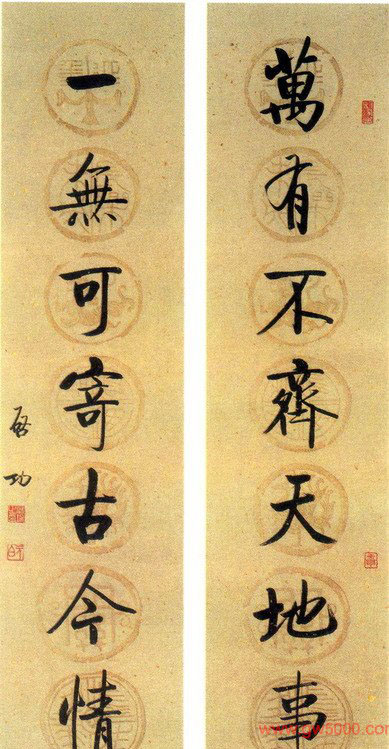 萬有不齊天地事
一無可寄古今情
啓功
www.gw5000.com